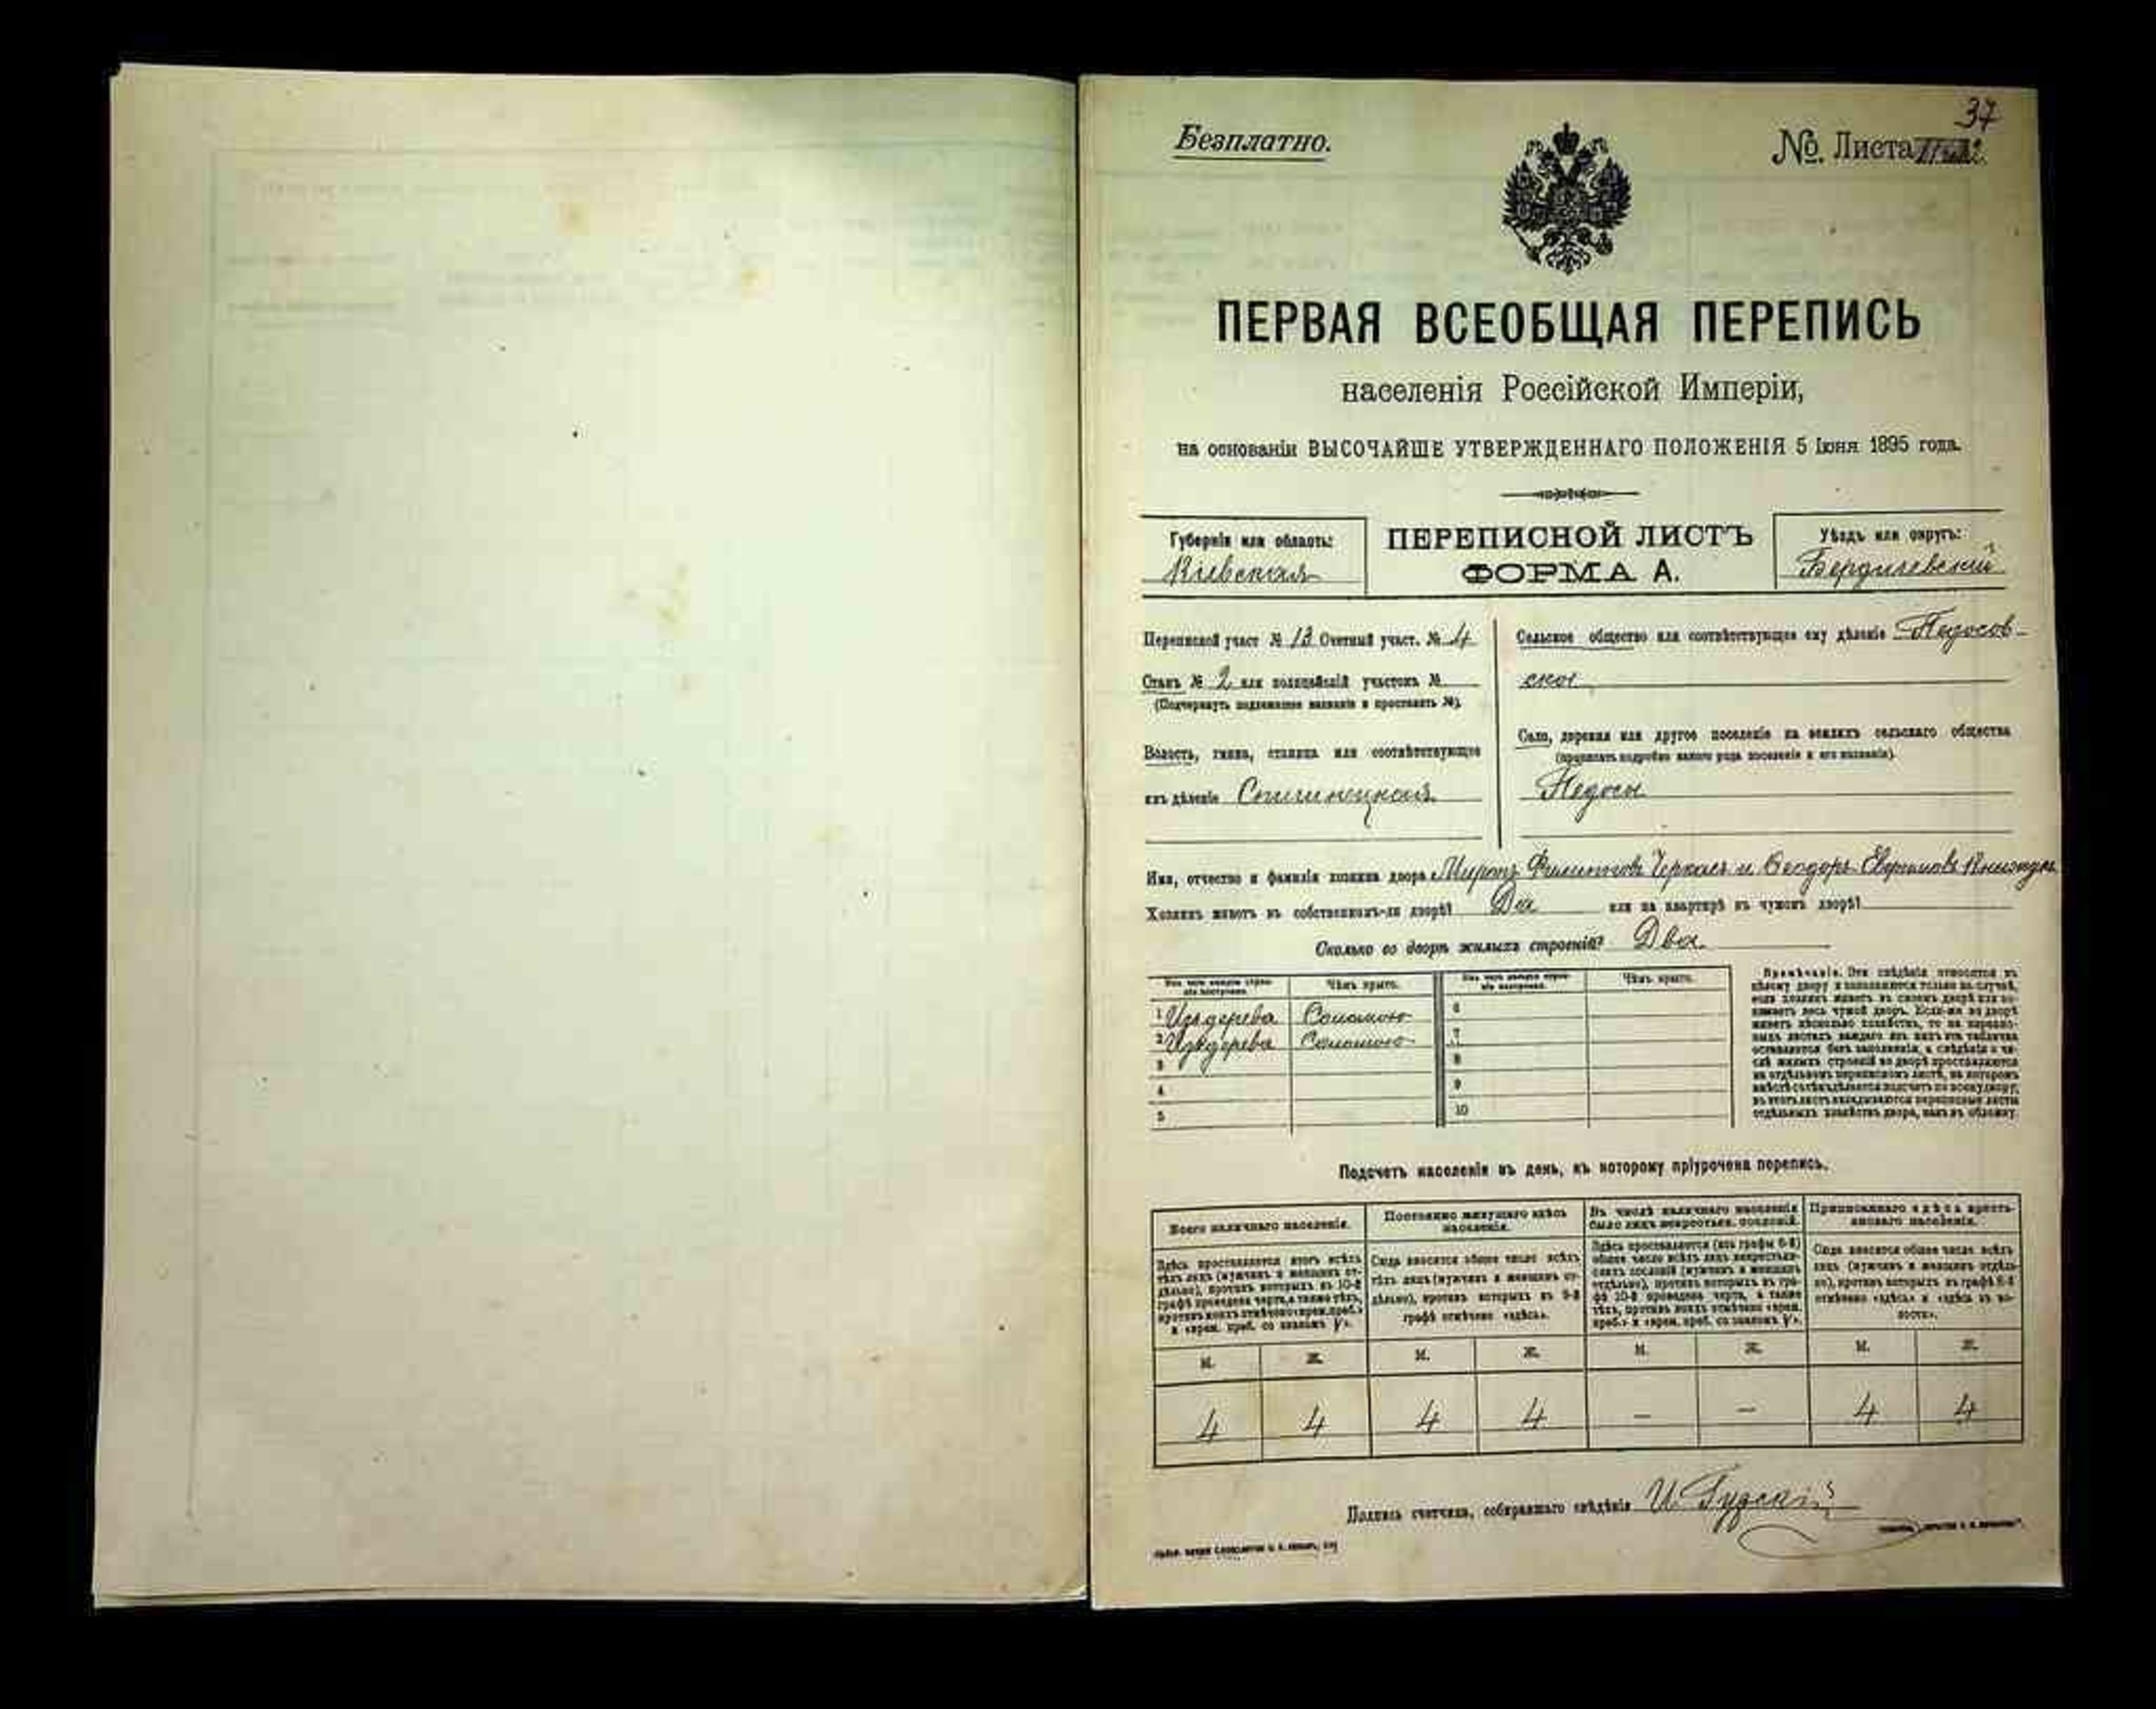 37
Безплатно.
№. Листа
ПЕРВАЯ ВСЕОБЩАЯ ПЕРЕПИСЬ
населенія Россійской Имперіи,
на основаніи ВЫСОЧАЙШЕ УТВЕРЖДЕННАГО ПОЛОЖЕНІЯ 5 Іюня 1895 года.
Губернія или область:
Кіевская
ПЕРЕПИСНОЙ ЛИСТЪ
ФОРМА А.
Уѣздъ или округъ:
Бердичевскій
Переписной участ № 13 Счетный участ. № 4
Станъ № 2 или полицейскій участокъ №
(Подчеркнуть подлежащее названіе и проставить №).
Волость, гмина, станица или соотвѣтствующее
имъ дѣленіе
Сельское общество или соотвѣтствующее ему дѣленіе Педосов-
ское
Село, деревня или другое поселеніе на земляхъ сельскаго общества
(прописать подробно какого рода поселеніе и его названіе).
Педосы
Имя, отчество и фамилія хозяина двора Миронъ Филиповъ Черкасъ и Ѳеодоръ
Хозяинъ живетъ въ собственномъ-ли дворѣ? Да или на квартирѣ въ чужомъ дворѣ?
Сколько во дворѣ жилыхъ строеній? Два
Изъ чего каждое строеніе построено. Чѣмъ крыто. Изъ чего каждое строеніе построено. Чѣмъ крыто.
1 Изъ дерева Соломою 6
2 Изъ дерева Соломою 7
3 8
4 9
5 10
Примѣчаніе. Эти свѣдѣнія относятся къ
цѣлому двору и заполняются только въ случаѣ,
если хозяинъ живетъ въ своемъ дворѣ или за-
нимаетъ весь чужой дворъ. Если-же во дворѣ
живетъ нѣсколько хозяйствъ, то на перепис-
ныхъ листахъ каждаго изъ нихъ эта табличка
оставляется безъ заполненія, а свѣдѣнія о чи-
слѣ жилыхъ строеній во дворѣ проставляются
на отдѣльномъ переписномъ листѣ, на которомъ
вмѣстѣ съ тѣмъ дѣлается подсчетъ по всему двору;
въ этотъ листъ вкладываются переписные листы
отдѣльныхъ хозяйствъ двора, какъ въ обложку.
Подсчетъ населенія въ день, къ которому пріурочена перепись.
Всего наличнаго населенія.
Здѣсь проставляется итогъ всѣхъ
тѣхъ лицъ (мужчинъ и женщинъ от-
дѣльно), противъ которыхъ въ 10-й
графѣ проведена черта, а также тѣхъ,
противъ коихъ отмѣчено «врем. преб.»
и «врем. преб. со знакомъ V».
Постоянно живущаго здѣсь
населенія.
Сюда вносится общее число всѣхъ
тѣхъ лицъ (мужчинъ и женщинъ от-
дѣльно), противъ которыхъ въ 9-й
графѣ отмѣчено «здѣсь».
Въ числѣ наличнаго населенія
было лицъ некрестьян. сословій.
Здѣсь проставляется (изъ графы 6-й)
общее число всѣхъ лицъ некрестьян-
скихъ сословій (мужчинъ и женщинъ
отдѣльно), противъ которыхъ въ гра-
фѣ 10-й проведена черта, а также
тѣхъ, противъ коихъ отмѣчено «врем.
преб.» и «врем. преб. со знакомъ V».
Приписаннаго здѣсь кресть-
янскаго населенія.
Сюда вносится общее число всѣхъ
лицъ (мужчинъ и женщинъ отдѣль-
но), противъ которыхъ въ графѣ 8-й
отмѣчено «здѣсь» и «здѣсь въ во-
лости».
М. Ж. М. Ж. М. Ж. М. Ж.
4 4 4 4 — — 4 4
Подпись счетчика, собиравшаго свѣдѣнія И. Гудскій